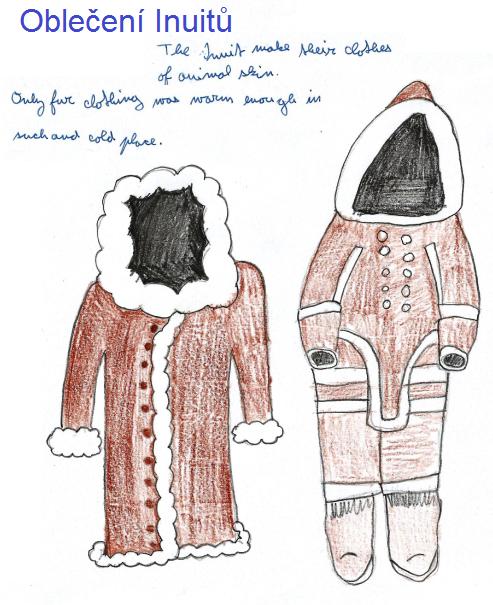 Oblečení Inuitů
The Inuit make their clothes
of animal skin.
Only fur clothing was warm enough in
such and cold place.